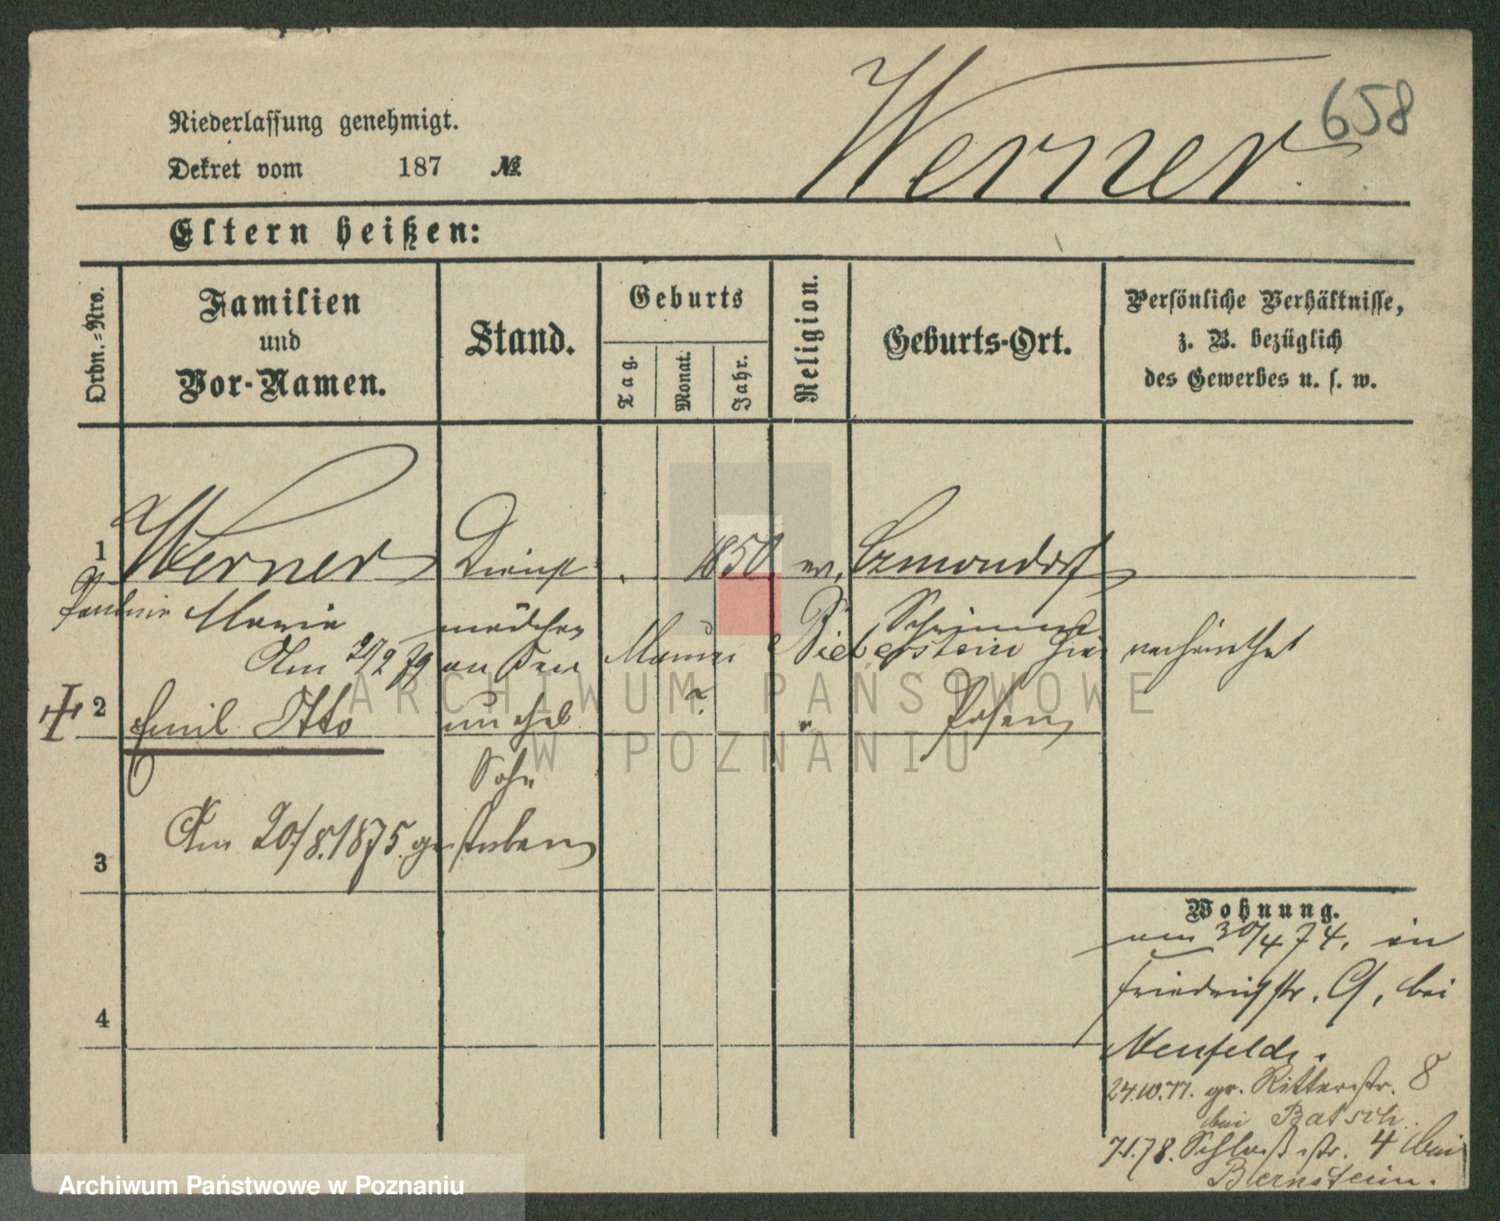 Werner.
658
Niederlassung genehmigt.
Dekret vom 187 №
Eltern heißen:
Ordn.=Nro.
Familien
und
Vor-Namen.
Stand.
Geburts
Tag.
Monat.
Jahr.
Religion.
Geburts-Ort.
Persönliche Verhältnisse,
z. B. bezüglich
des Gewerbes u. s. w.
1 Werner Dienst 1850 ev.
Pauline Maria mädchen
Am 27/2 79 an den Maurer Bieberstein hier verheirathet
2 Emil Otto unehel. " Posen
Sohn
Am 20/8.1875. gestorben
3
4
Wohnung.
am 30/4 74. in
Friedrichstr. 9, bei
Neufeld.
24.10.77. gr. Ritterstr. 8
bei Batsch.
7.1.78. Schloßstr. 4 bei
Bernstein.
ARCHIWUM PAŃSTWOWE
W POZNANIU
Archiwum Państwowe w Poznaniu